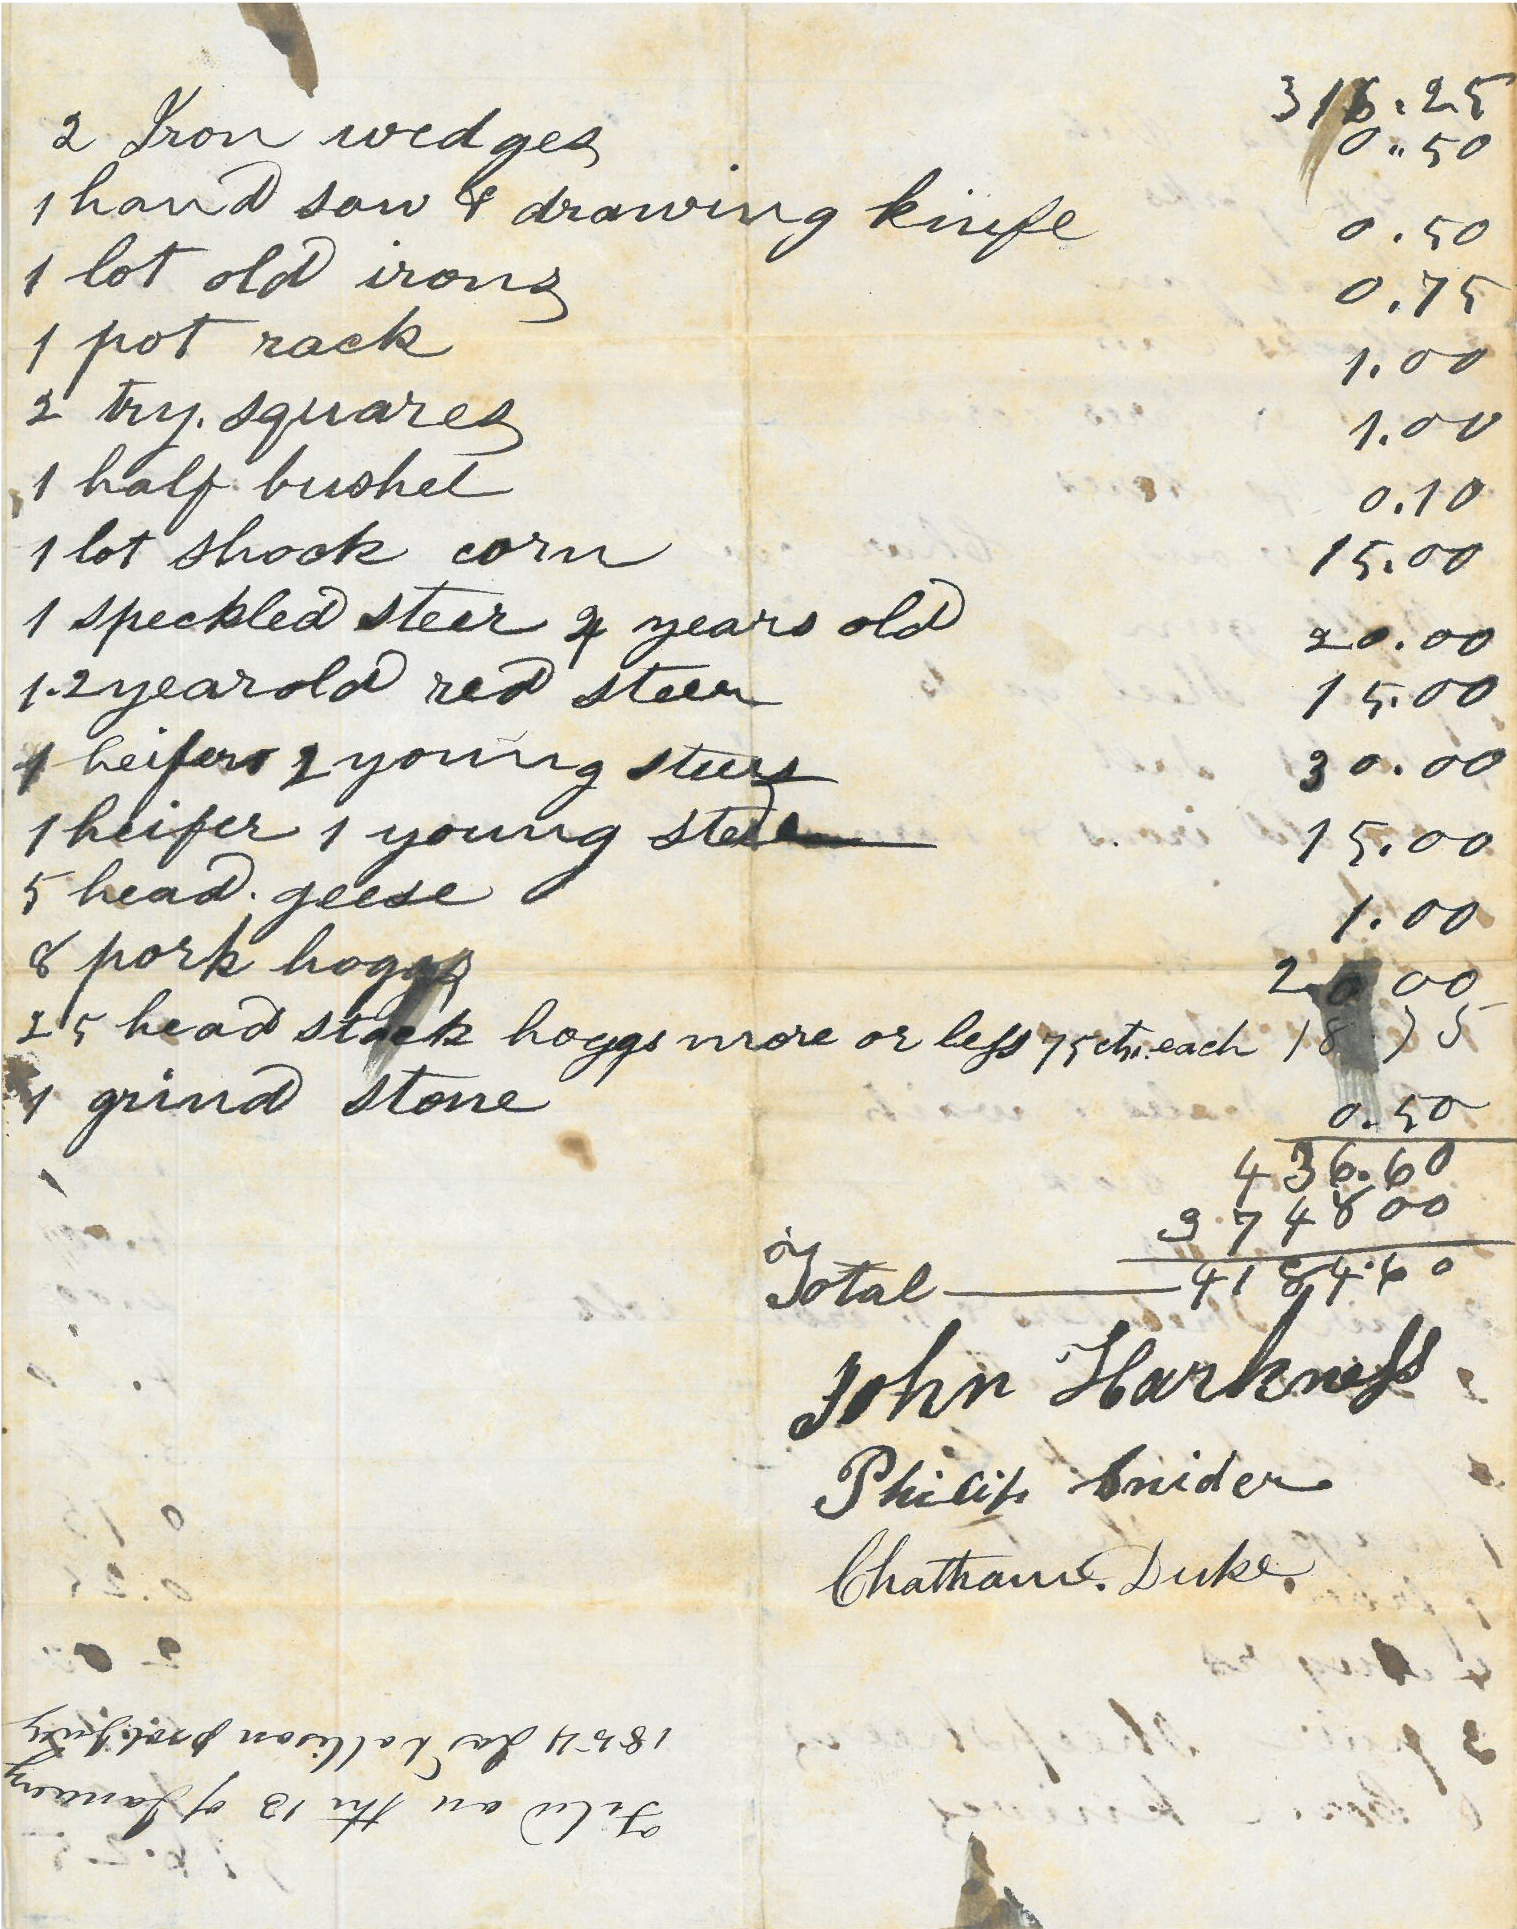 316.25
2 Iron wedges 0.50
1 hand saw & drawing knife 0.50
1 lot old irons 0.75
1 pot rack 1.00
2 try. squares 1.00
1 half bushel 0.10
1 lot shock corn 15.00
1 speckled steer 4 years old 20.00
1.2 year old red steer 15.00
heifers 2 young steers 30.00
1 heifer 1 young steer 15.00
5 head. geese 1.00
8 pork hoggs 20 00
25 head stock hoggs more or less 75 cts. each 18.75
1 grind stone 0.50
436.60
3748 00
Total 4184.60
John Harkness
Philip Snider
Chatham. Duke
Filed on the 13 of January
1854 Jas